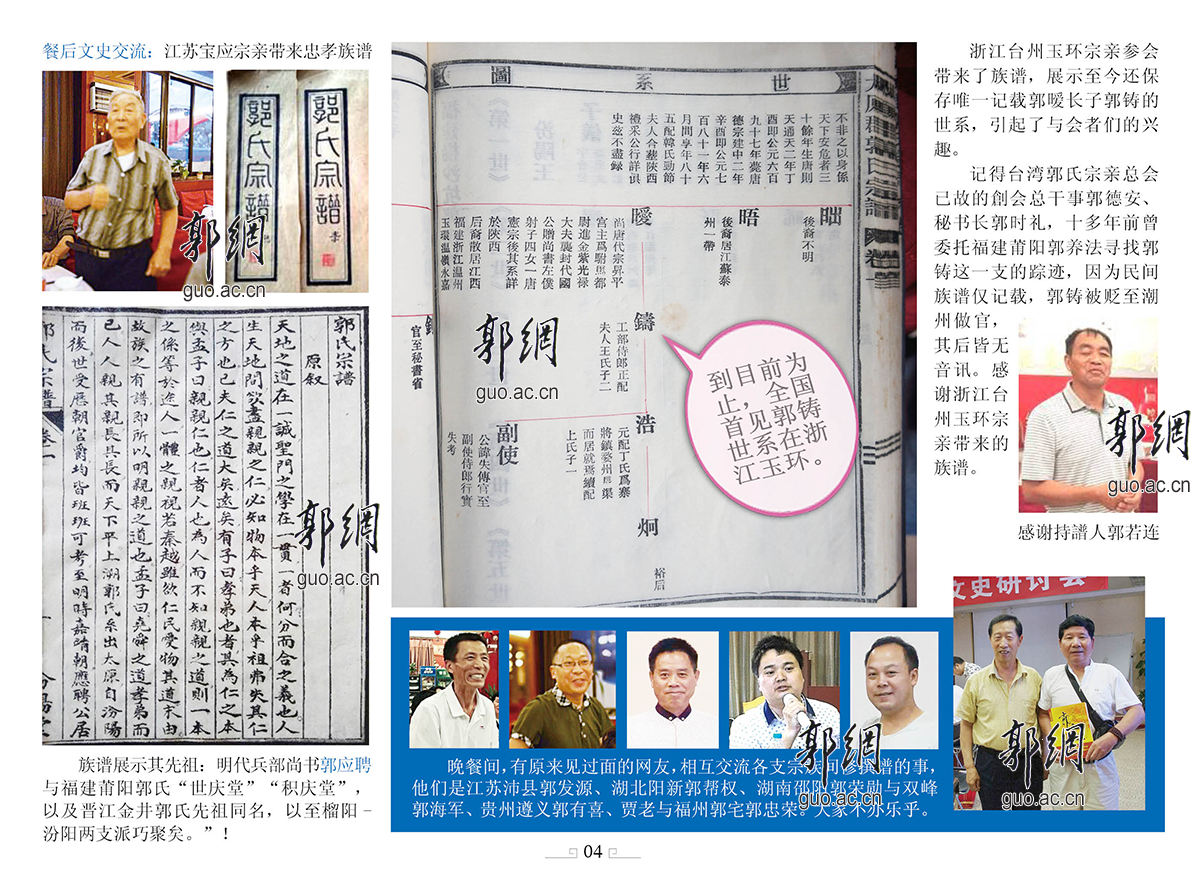 餐后文史交流：江苏宝应宗亲带来忠孝族谱
郭氏宗譜
郭氏宗譜
郭網
guo.ac.cn
郭氏宗譜
原叙
天地之道在一誠聖門之學在一貫一者何分而合之義也人
生天地間欲盡親親之仁必知物本乎天人本乎祖弗失其仁
之方也已夫仁之道大矣遠矣有子曰孝弟也者其為仁之本
與孟子曰親親仁也仁者人也為人而不知親親之道則一本
之係等於途人一體之親視若秦越雖欲仁民愛物其道末由
故族之有譜即所以明親親之道也孟子曰堯舜之道孝弟而
已人人親其親長其長而天下平上湖郭氏系出太原自汾陽
而後世受歷朝官爵均皆班班可考至明時嘉靖朝應聘公居
郭網
guo.ac.cn
族谱展示其先祖：明代兵部尚书郭应聘
与福建莆阳郭氏“世庆堂”“积庆堂”，
以及晋江金井郭氏先祖同名，以至榴阳–
汾阳两支派巧聚矣。”！
世系圖
不非之以身係
天下安危者三
十餘年生唐則
天通天二年丁
酉即公元六百
九十七年薨唐
德宗建中二年
辛酉即公元七
百八十一年六
月間享年八十
五配韓氏勁節
夫人合塟陝西
禮采公行詳俱
史兹不盡錄
昢
後裔不明
晤
後裔居江蘇泰
州一帶
曖
尚唐代宗昇平
宮主爲駙馬都
尉進金紫光禄
大夫襲封代國
公贈尚書左僕
射子四女一唐
憲宗後其系詳
於陝西
后裔散居江西
福建浙江温州
玉環温嶺永嘉
鑄
工部侍郎正配
夫人王氏子二
浩
元配丁氏爲寨
將鎮婺州卽渠
而居就焉續配
上氏子一
炯
裕后
副使
公諱失傳官至
副使侍郎行實
失考
官至秘書省
郭網
guo.ac.cn
到目前为
止，全国
首见郭铸
世系在浙
江玉环。
浙江台州玉环宗亲参会
带来了族谱，展示至今还保
存唯一记载郭暧长子郭铸的
世系，引起了与会者们的兴
趣。
记得台湾郭氏宗亲总会
已故的創会总干事郭德安、
秘书长郭时礼，十多年前曾
委托福建莆阳郭养法寻找郭
铸这一支的踪迹，因为民间
族谱仅记载，郭铸被贬至潮
州做官，
其后皆无
音讯。感
谢浙江台
州玉环宗
亲带来的
族谱。
郭網
guo.ac.cn
感谢持譜人郭若连
文史研讨会
郭網
guo.ac.cn
郭網
guo.ac.cn
晚餐间，有原来见过面的网友，相互交流各支宗族间修撰谱的事，
他们是江苏沛县郭发源、湖北阳新郭帮权、湖南邵阳郭荣勋与双峰
郭海军、贵州遵义郭有喜、贾老与福州郭宅郭忠荣。大家不亦乐乎。
04